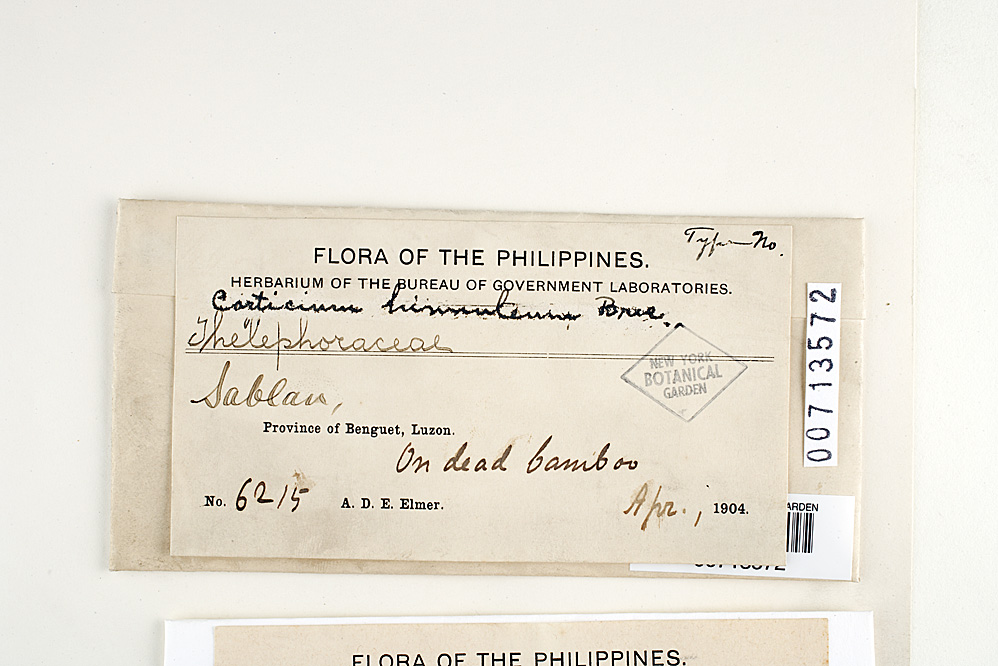 Type No.
FLORA OF THE PHILIPPINES.
HERBARIUM OF THE BUREAU OF GOVERNMENT LABORATORIES.
Corticium hinnuleum Bres.
Thelephoraceae
NEW YORK
BOTANICAL
GARDEN
Sablan,
Province of Benguet, Luzon.
On dead bamboo
No. 6215 A. D. E. Elmer. Apr., 1904.
00713572
ARDEN
00713572
FLORA OF THE PHILIPPINES.